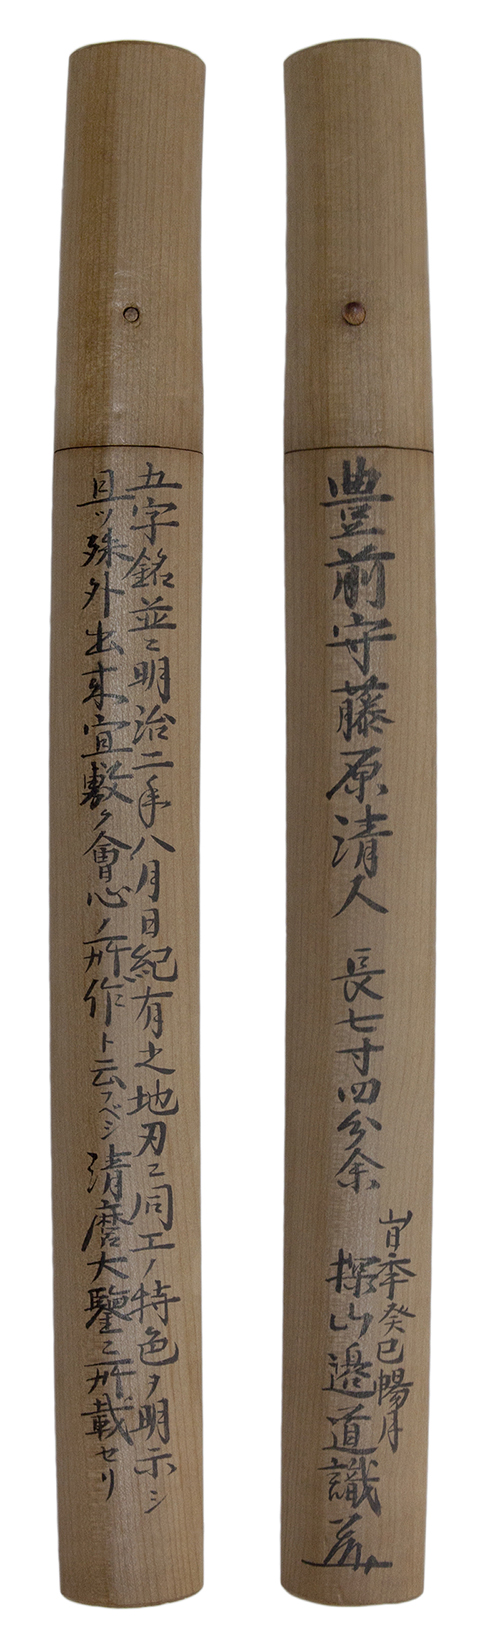 豊前守藤原清人 長七寸四分余
旹季癸巳暢月
探山邉道識
五字銘並ニ明治二年八月日紀有之地刃ニ同工ノ特色ヲ明示シ
且ツ殊外出来宜敷ク會心ノ所作ト云フベシ清麿大鑒ニ所載セリ